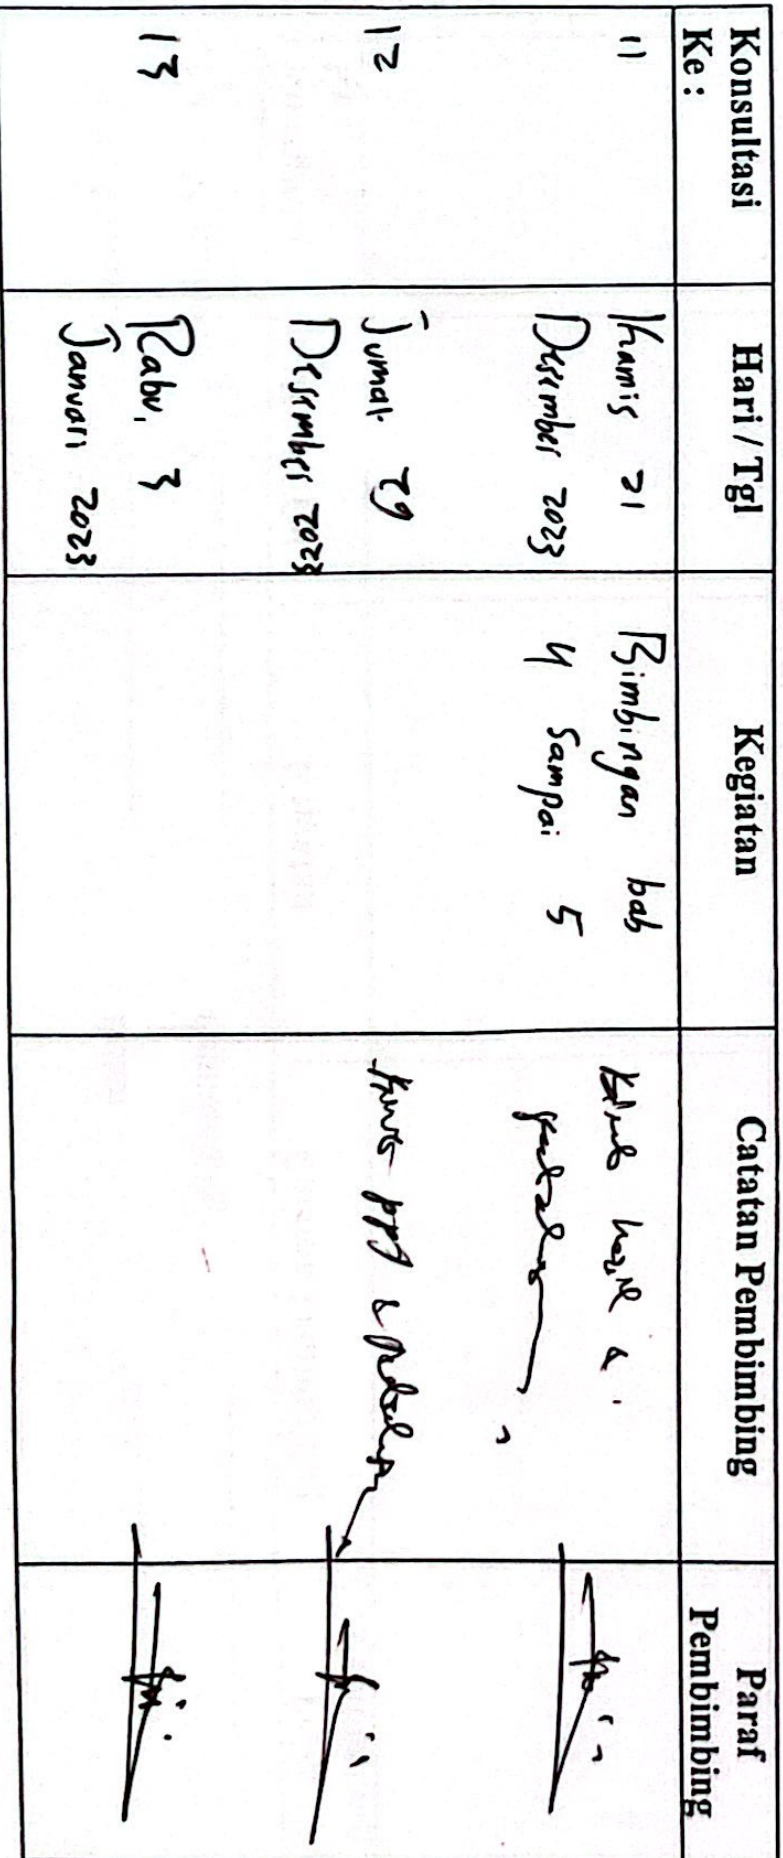 Konsultasi
Ke :
Hari / Tgl
Kegiatan
Catatan Pembimbing
Paraf
Pembimbing
11
Khamis 21
Desember 2023
Bimbingan bab
4 sampai 5
hasil &
12
Jumat 29
Desember 2023
ppt &
13
Rabu, 3
Januari 2023